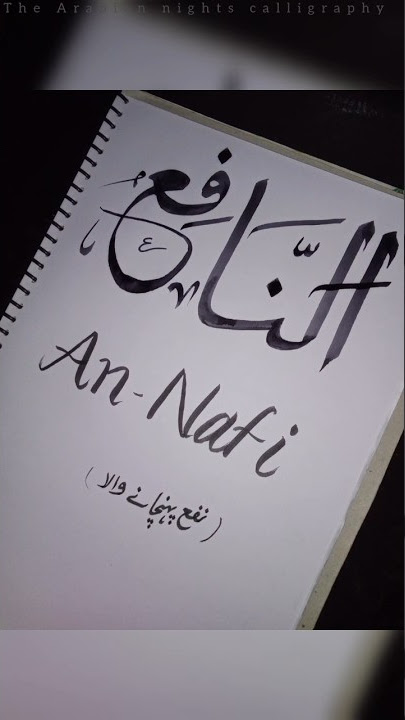 The Arabian nights calligraphy
النَّافِعُ
An-Nafi
(نفع پہنچانے والا)